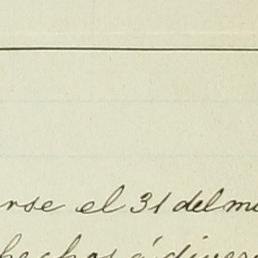 rse el 31 del m
hechos á divers